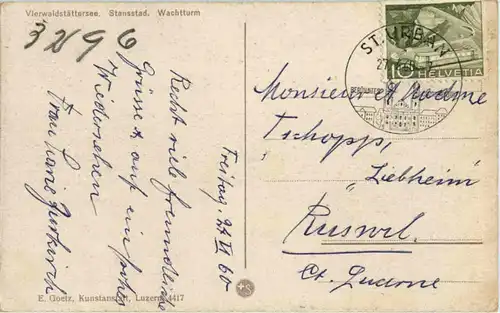 Vierwaldstättersee. Stansstad. Wachtturm
32496
Recht viele freundliche
Grüsse & auf ein frohes
Wiedersehen
Frau Marie
Freitag, 24 VI 60
ST. URBAN
10 HELVETIA
Monsieur et Madame
Tschopp,
"Liebheim"
Ruswil.
Ct. Lucerne
E. Goetz, Kunstanstalt, Luzern 4417